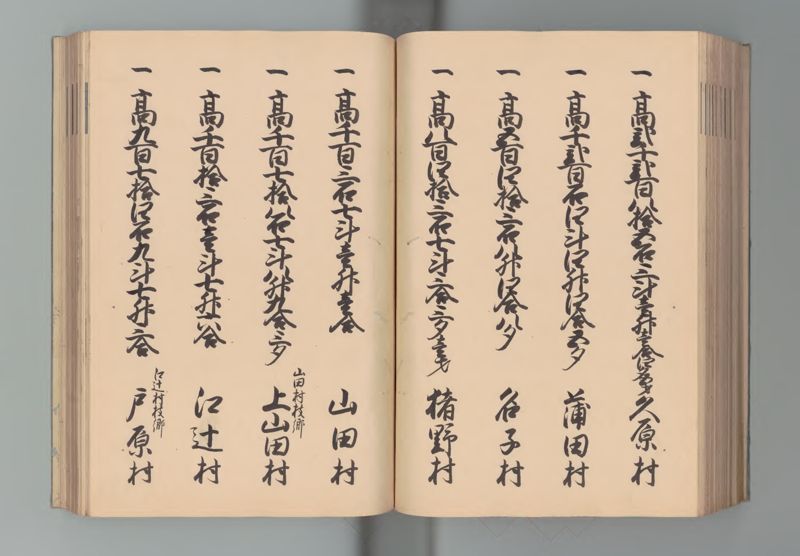 一 高弐千弐百八拾五石三斗壱升壱合 久原村
一 高千弐百石四斗四升四合五夕 蒲田村
一 高五百四拾三石八升四合八夕 名子村
一 高八百四拾三石七斗三合三夕壱才 猪野村
一 高千百三石七斗壱升壱合 山田村
一 高千百七拾八石七斗八升九合三夕 山田村枝郷 上山田村
一 高千百拾三石壱斗七升六合 江辻村
一 高九百七拾四石九斗七升三合 江辻村枝郷 戸原村